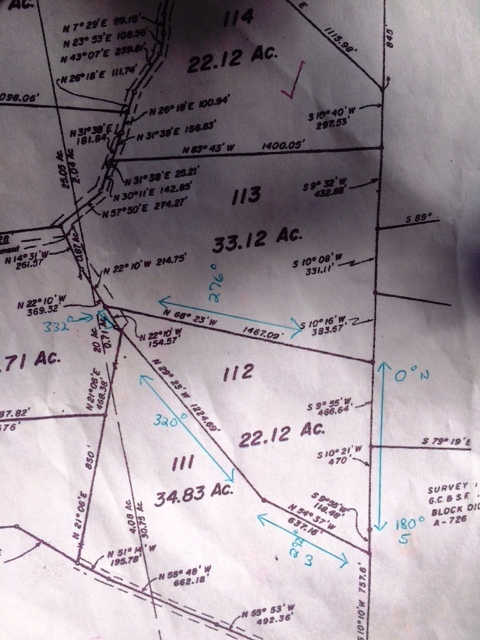 Ac.
114
22.12 Ac.
N 7° 29' E 99.18'
N 23° 53' E 108.56'
N 43° 07' E 239.81'
N 26° 18' E 111.74'
E
1115.98'
845'
098.06'
N 26° 18' E 100.94'
N 31° 38' E
181.84'
N 31° 38' E 158.63'
S 10° 40' W
297.53'
N 83° 43' W 1400.05'
25.05 Ac.
2.04 Ac.
N 31° 38' E 25.21'
N 30° 11' E 142.85'
N 57° 50' E 274.27'
113
33.12 Ac.
S 9° 32' W
432.68'
S 89°
28
N 14° 31' W
261.57'
0.87 Ac.
N 22° 10' W 214.75'
S 10° 08' W
331.11'
276°
N 22° 10' W
369.32'
332°
N 68° 23' W 1467.09'
S 10° 16' W
383.67'
20 Ac.
0.71 Ac.
N 22° 10' W
154.57'
.71 Ac.
112
0° N
N 29° 25' W 1224.69'
N 21° 06' E
468.38'
S 9° 55' W
466.64'
320°
22.12 Ac.
87.82'
676'
S 10° 21' W
470'
S 79° 19' E
850'
111
34.83 Ac.
SURVEY 1
G.C. & S.F.
BLOCK DIG
A-726
N 54° 37' W
637.16'
118.48'
180°
S
N 21° 06' E
4.08 Ac.
30.75 Ac.
N 51° 14' W
195.78'
N 55° 48' W
662.18'
757.6'
S 10° 10' W
N 55° 53' W
492.36'